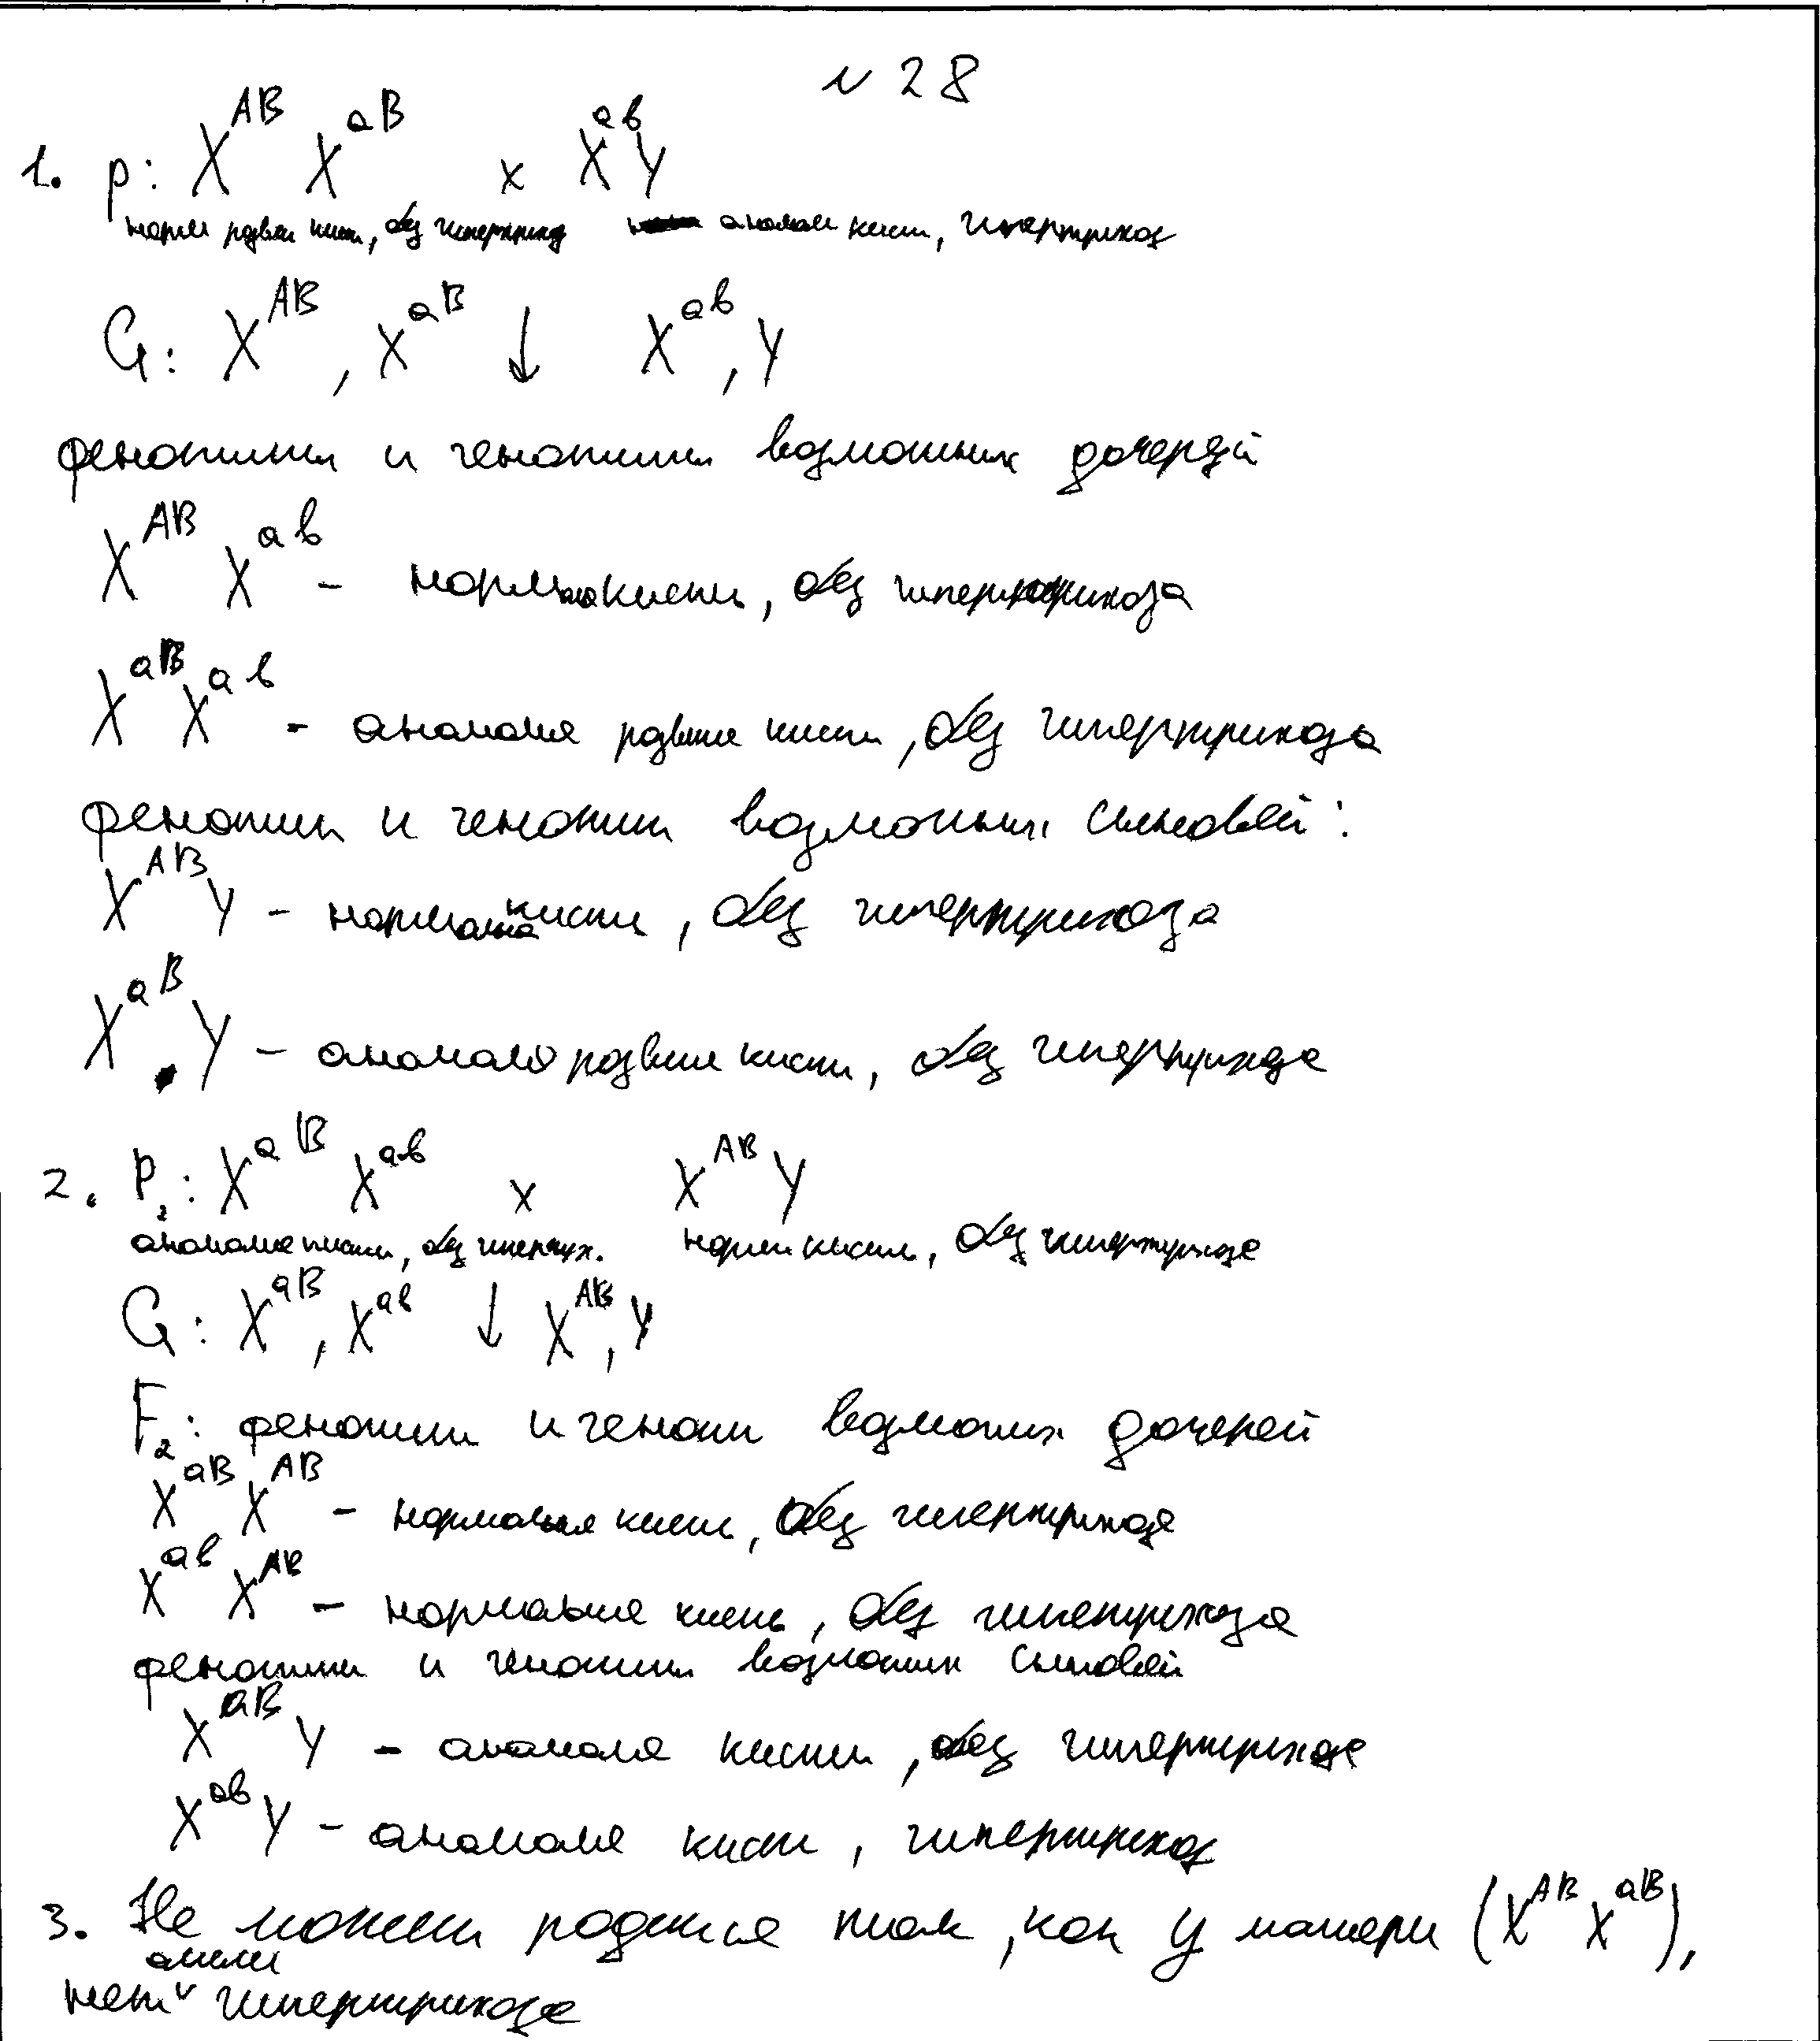 № 28
1. P: X^AB X^aB x X^ab Y
норм развит кисти, без гипертрихоз аномал кисти, гипертрихоз
G: X^AB, X^aB ↓ X^ab, Y
фенотипы и генотипы возможных дочерей
X^AB X^ab - нормальная кисть, без гипертрихоза
X^aB X^ab - аномалия развития кисти, без гипертрихоза
фенотип и генотип возможных сыновей:
X^AB Y - нормальна кисть, без гипертрихоза
X^aB Y - аномалия развития кисти, без гипертрихоза
2. P2: X^aB X^ab x X^AB Y
аномалия кисти, без гипертрих. норм кисть, без гипертрихоза
G: X^aB, X^ab ↓ X^AB, Y
F2: фенотип и генотип возможных дочерей
X^aB X^AB - нормальная кисть, без гипертрихоза
X^ab X^AB - нормальная кисть, без гипертрихоза
фенотипы и генотипы возможных сыновей
X^aB Y - аномалия кисти, без гипертрихоза
X^ab Y - аномалия кисти, гипертрихоз
3. Не может родиться так, как у матери (X^AB X^aB),
нет аллели гипертрихоза